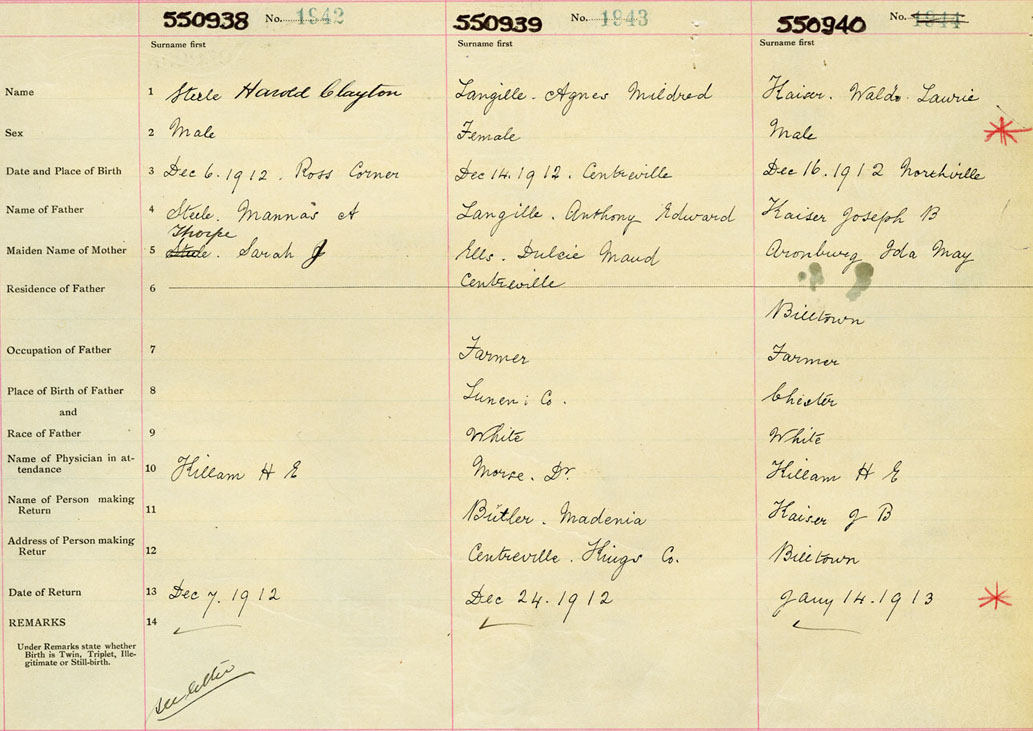 550938 No. 1942 550939 No. 1943 550940 No. 1944
Surname first Surname first Surname first
Name 1 Steele Harold Clayton Langille. Agnes Mildred Kaiser. Waldo. Laurie
Sex 2 Male Female Male
Date and Place of Birth 3 Dec 6. 1912. Ross Corner Dec 14. 1912. Centreville Dec 16. 1912 Northville
Name of Father 4 Steele. Mannas A Langille. Anthony Edward Kaiser Joseph B
Thorpe
Maiden Name of Mother 5 Steele. Sarah J Ells. Dulcie Maud Ida May
Residence of Father 6 Centreville
Billtown
Occupation of Father 7 Farmer Farmer
Place of Birth of Father 8 Lunen; Co. Chester
and
Race of Father 9 White White
Name of Physician in at-
tendance 10 Killam H E Morse. Dr. Killam H E
Name of Person making
Return 11 Butler. Madenia Kaiser J B
Address of Person making
Retur 12 Centreville. Kings Co. Billtown
Date of Return 13 Dec 7. 1912 Dec 24. 1912 Jany 14. 1913
REMARKS 14
Under Remarks state whether
Birth is Twin, Triplet, Ille-
gitimate or Still-birth.
see letter